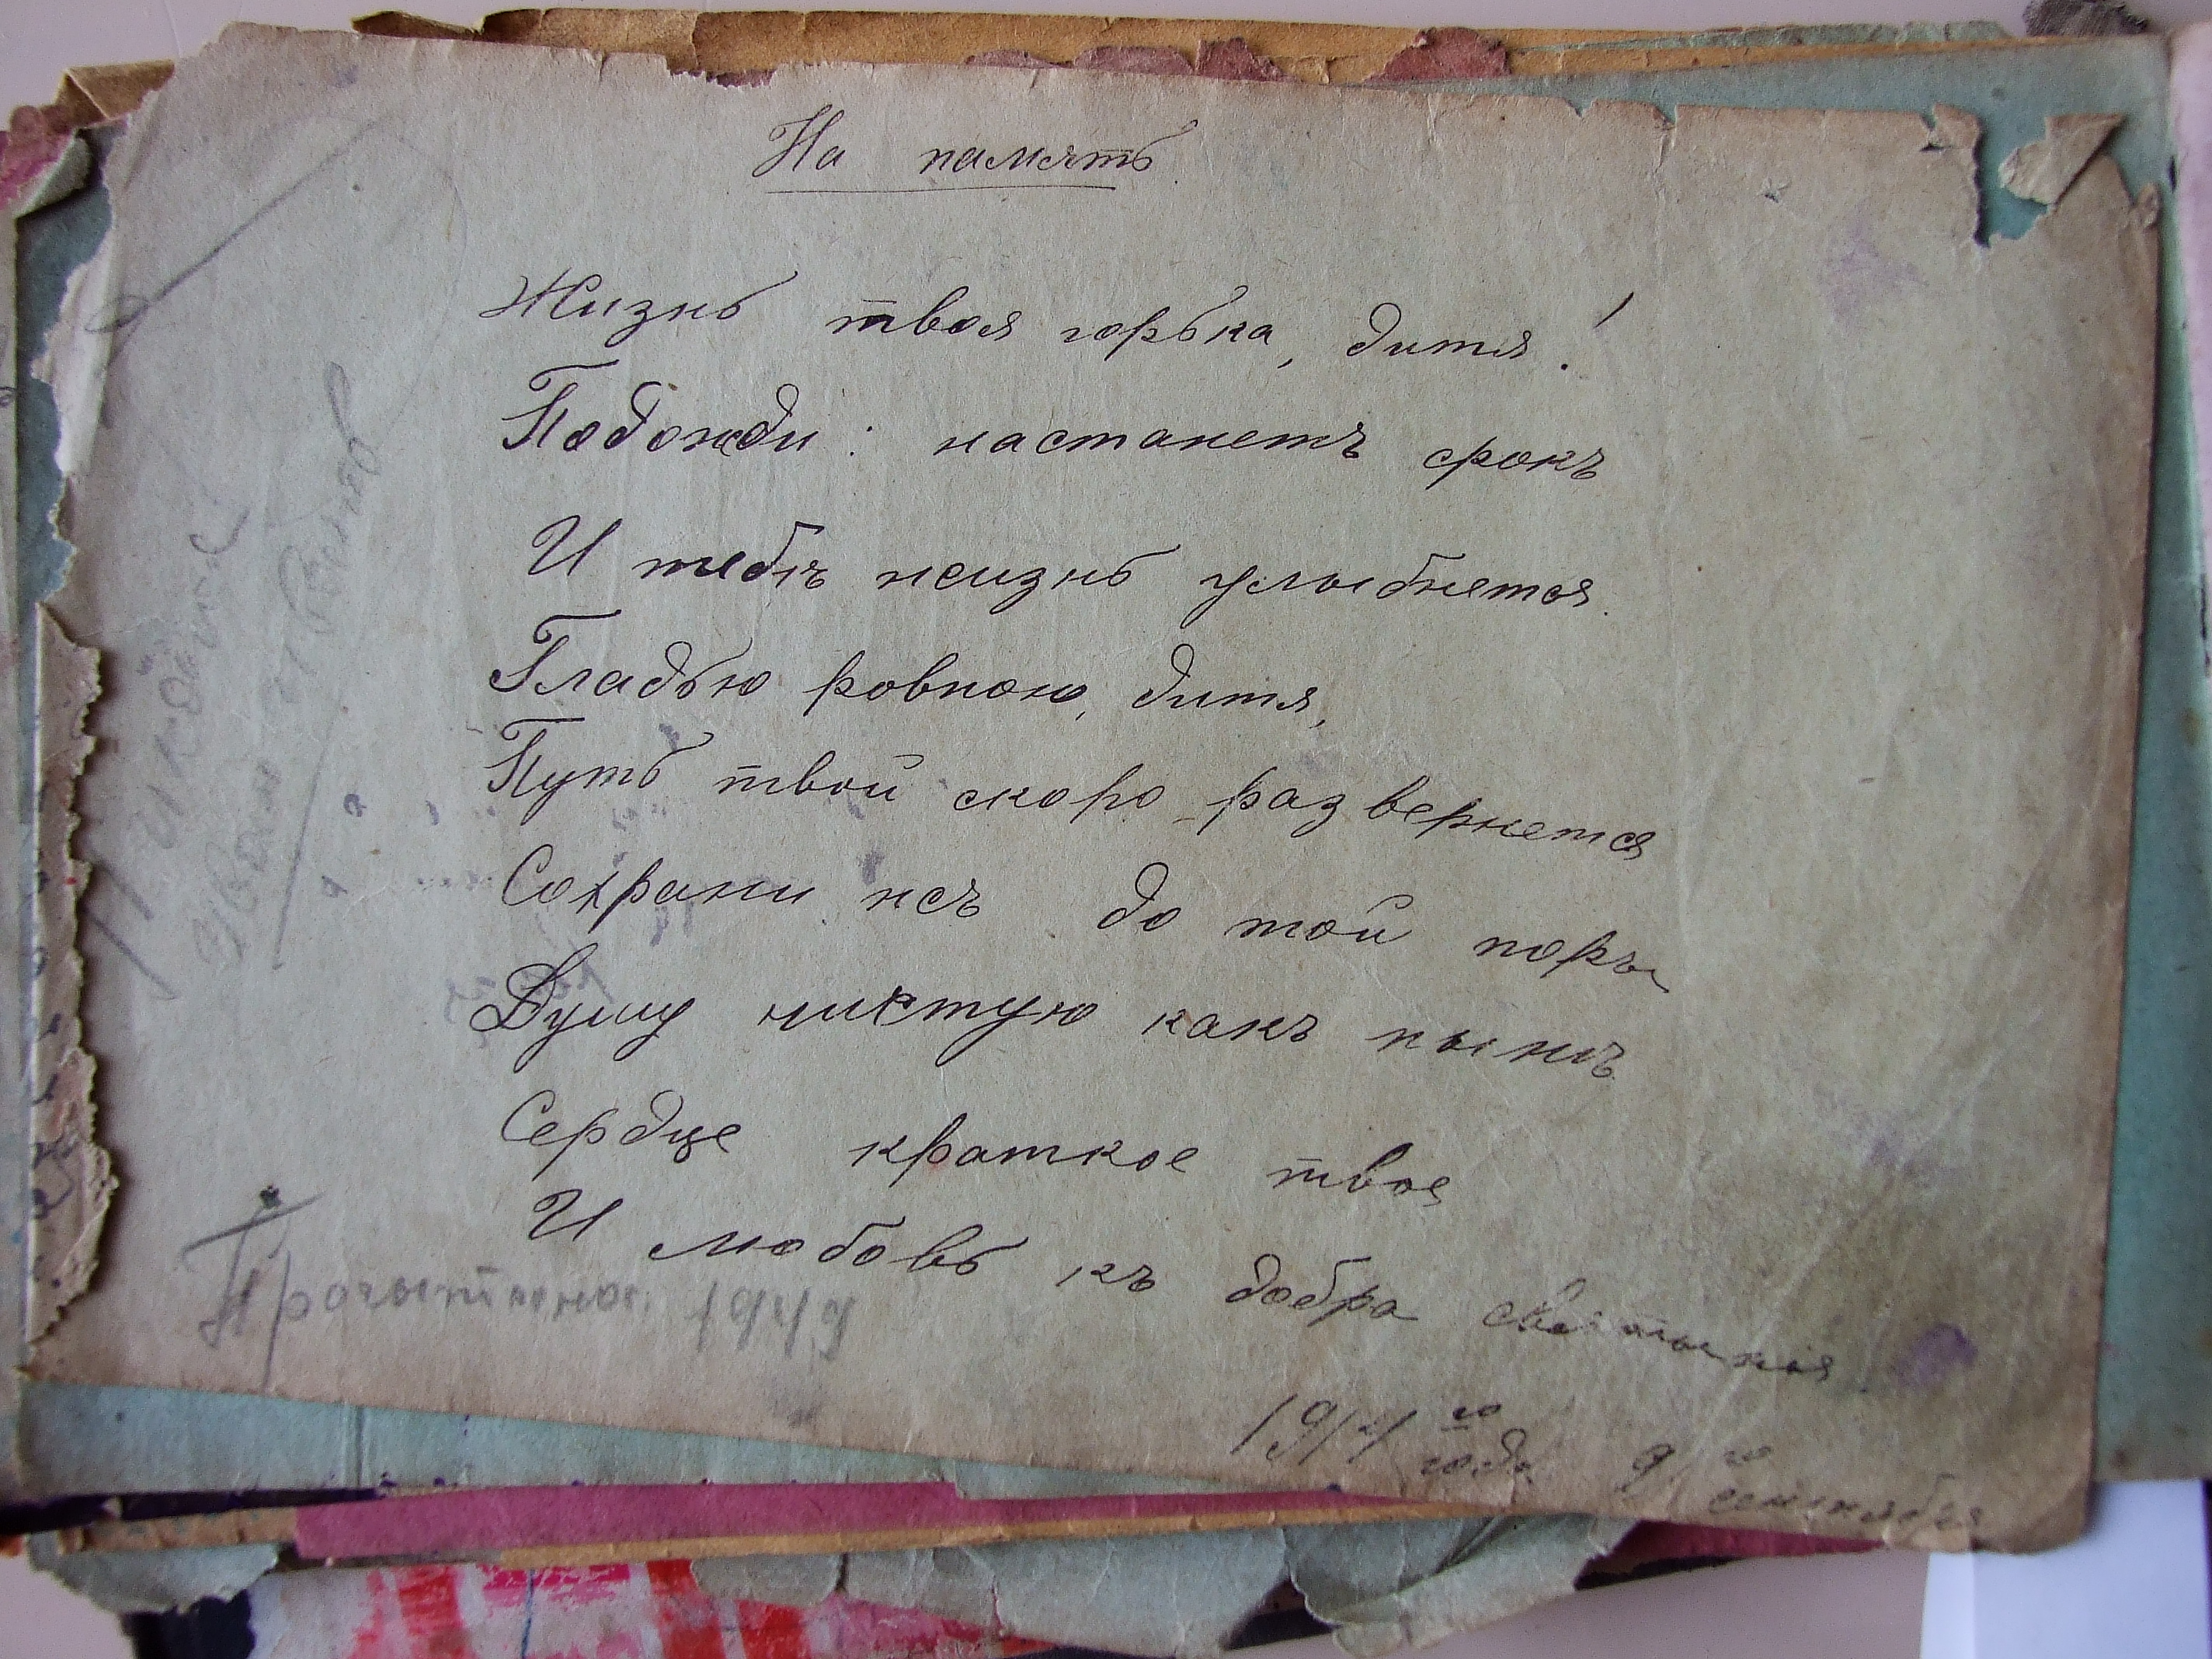 На память.
Жизнь твоя горька, дитя!
Подожди: настанетъ срокъ
И тебѣ жизнь улыбнется.
Гладью ровною, дитя,
Путь твой скоро развернется
Сохрани жъ до той поры
Душу чистую какъ нынѣ
Сердце краткое твое
И любовь къ добра святыня.
1914 го года 9 го сентября
Прочитано 1919